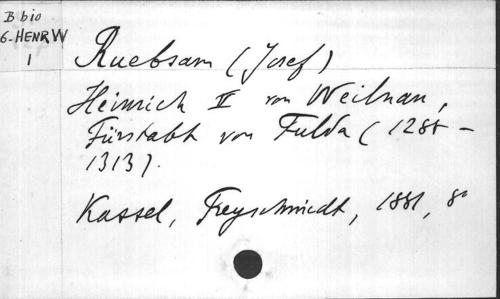 B bio
6-HENR W
1
Ruebsam (Josef)
Heinrich II von Weilnau,
Fürstabt von Fulda (1288 -
1313).
Kassel, Freyschmidt, 1881, 8°